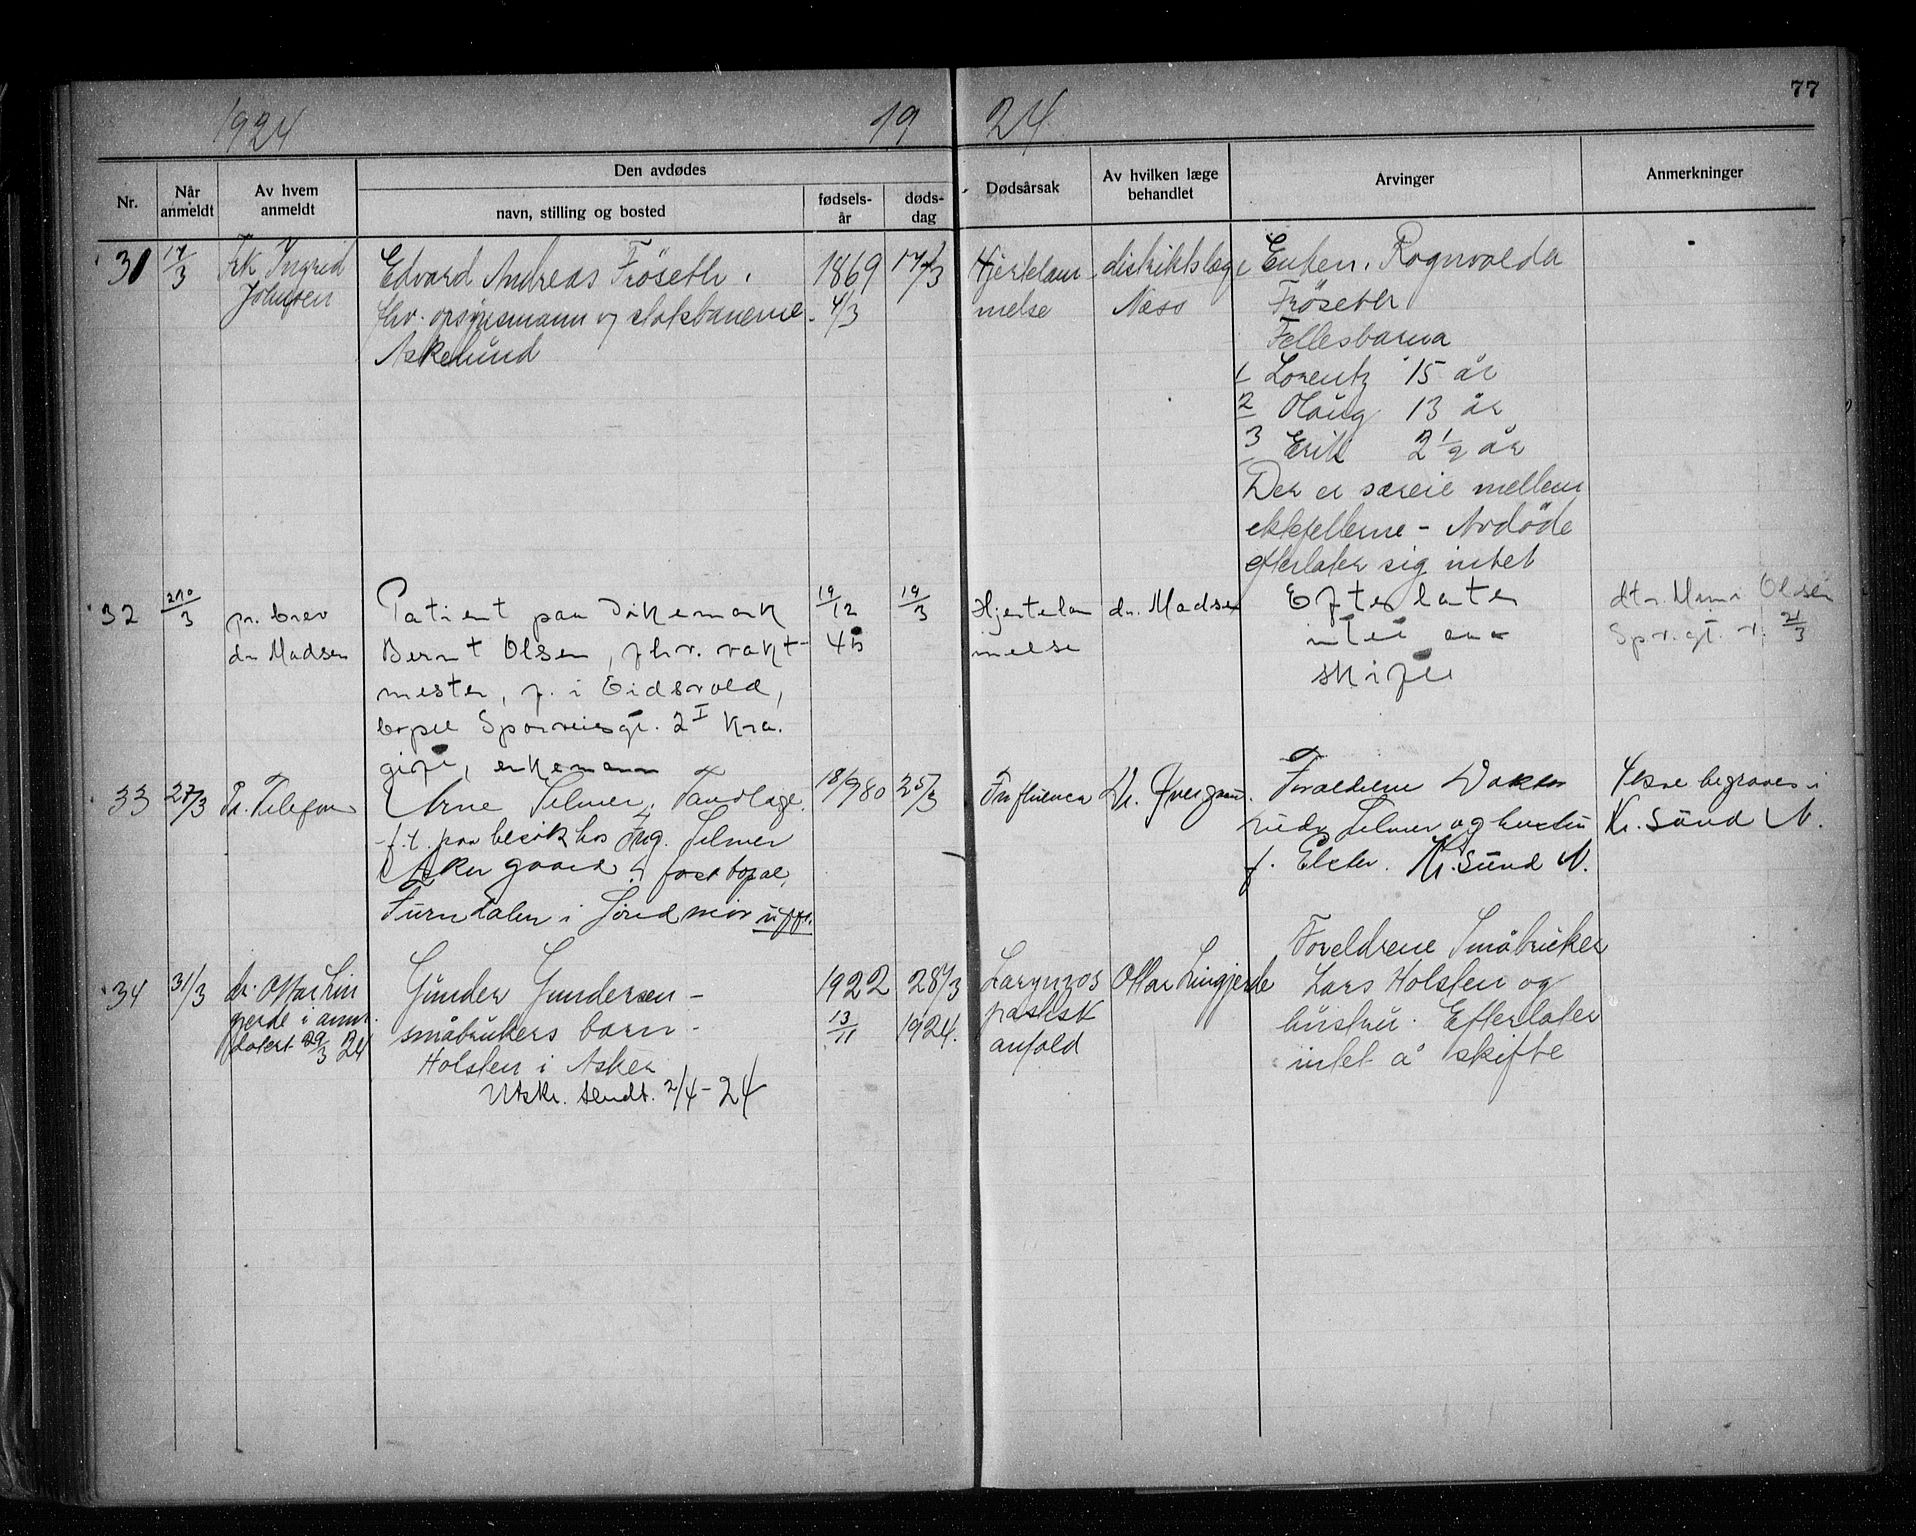 77
1924
19 24
Nr.
Når anmeldt
Av hvem anmeldt
Den avdødes
navn, stilling og bosted
fødsels-år
døds-dag
Dødsårsak
Av hvilken læge behandlet
Arvinger
Anmerkninger
31
17/3
Frk Ingrid
Johnsen
Edvard Andreas Fröseth.
fhv. opsynsmann og statsbanerne
Askelund
1869
4/3
17/3
Hjertelam-
melse
distriktslæge
Næss
Enken. Rognvalda
Fröseth
Fellesbarna
1 Lorentz 15 år
2 Olaug 13 år
3 Erik 2 1/2 år
Der er særeie mellem
ektefellerne - Avdöde
efterlater sig intet
32
20/3
pr. brev
dr Madsen
Patient paa Dikemark
Bernt Olsen, fhv. vakt-
mester, f. i Eidsvold,
bopæl Sporveisgt. 2 I Kra.
gift, enkemann
19/12
45
19/3
Hjertelam
melse
dr. Madsen
Efterlater
intet aa
skifte
dtr. Mimi Olsen
Sp.v.gt. 21/3
33
27/3
Pr. Telefon
Arne Selmer, Tandlæge.
f.t. paa besök hos Ing. Selmer
Asker gaard, fast bopæl,
Surndalen i Nordmör ugift.
18/9 80
25/3
Influenca
Dr. Övergaard.
Forældrene Doktor
Selmer og hustru
f. Elster. Kr. Sund N.
Kr. Sund N.
begraves i
34
31/3
dr. Ottar Lin
gjerde i anm.
datert 29/3 24
Gunder Gundersen -
småbrukers barn -
Holsten i Asker
Utskr. sendt. 2/4-24
1922
13/11
28/3
1924.
Laryngos
pastisk
anfald
Ottar Lingjerde
Foreldrene Småbruker
Lars Holsten og
hustru. Efterlater
intet å skifte